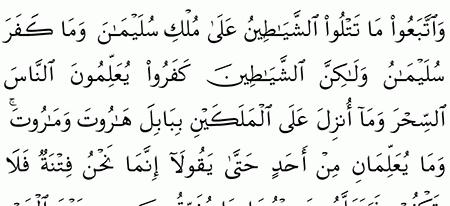 وَٱتَّبَعُوا۟ مَا تَتْلُوا۟ ٱلشَّيَـٰطِينُ عَلَىٰ مُلْكِ سُلَيْمَـٰنَ وَمَا كَفَرَ
سُلَيْمَـٰنُ وَلَـٰكِنَّ ٱلشَّيَـٰطِينَ كَفَرُوا۟ يُعَلِّمُونَ ٱلنَّاسَ
ٱلسِّحْرَ وَمَآ أُنزِلَ عَلَى ٱلْمَلَكَيْنِ بِبَابِلَ هَـٰرُوتَ وَمَـٰرُوتَ ۚ
وَمَا يُعَلِّمَانِ مِنْ أَحَدٍ حَتَّىٰ يَقُولَآ إِنَّمَا نَحْنُ فِتْنَةٌ فَلَا